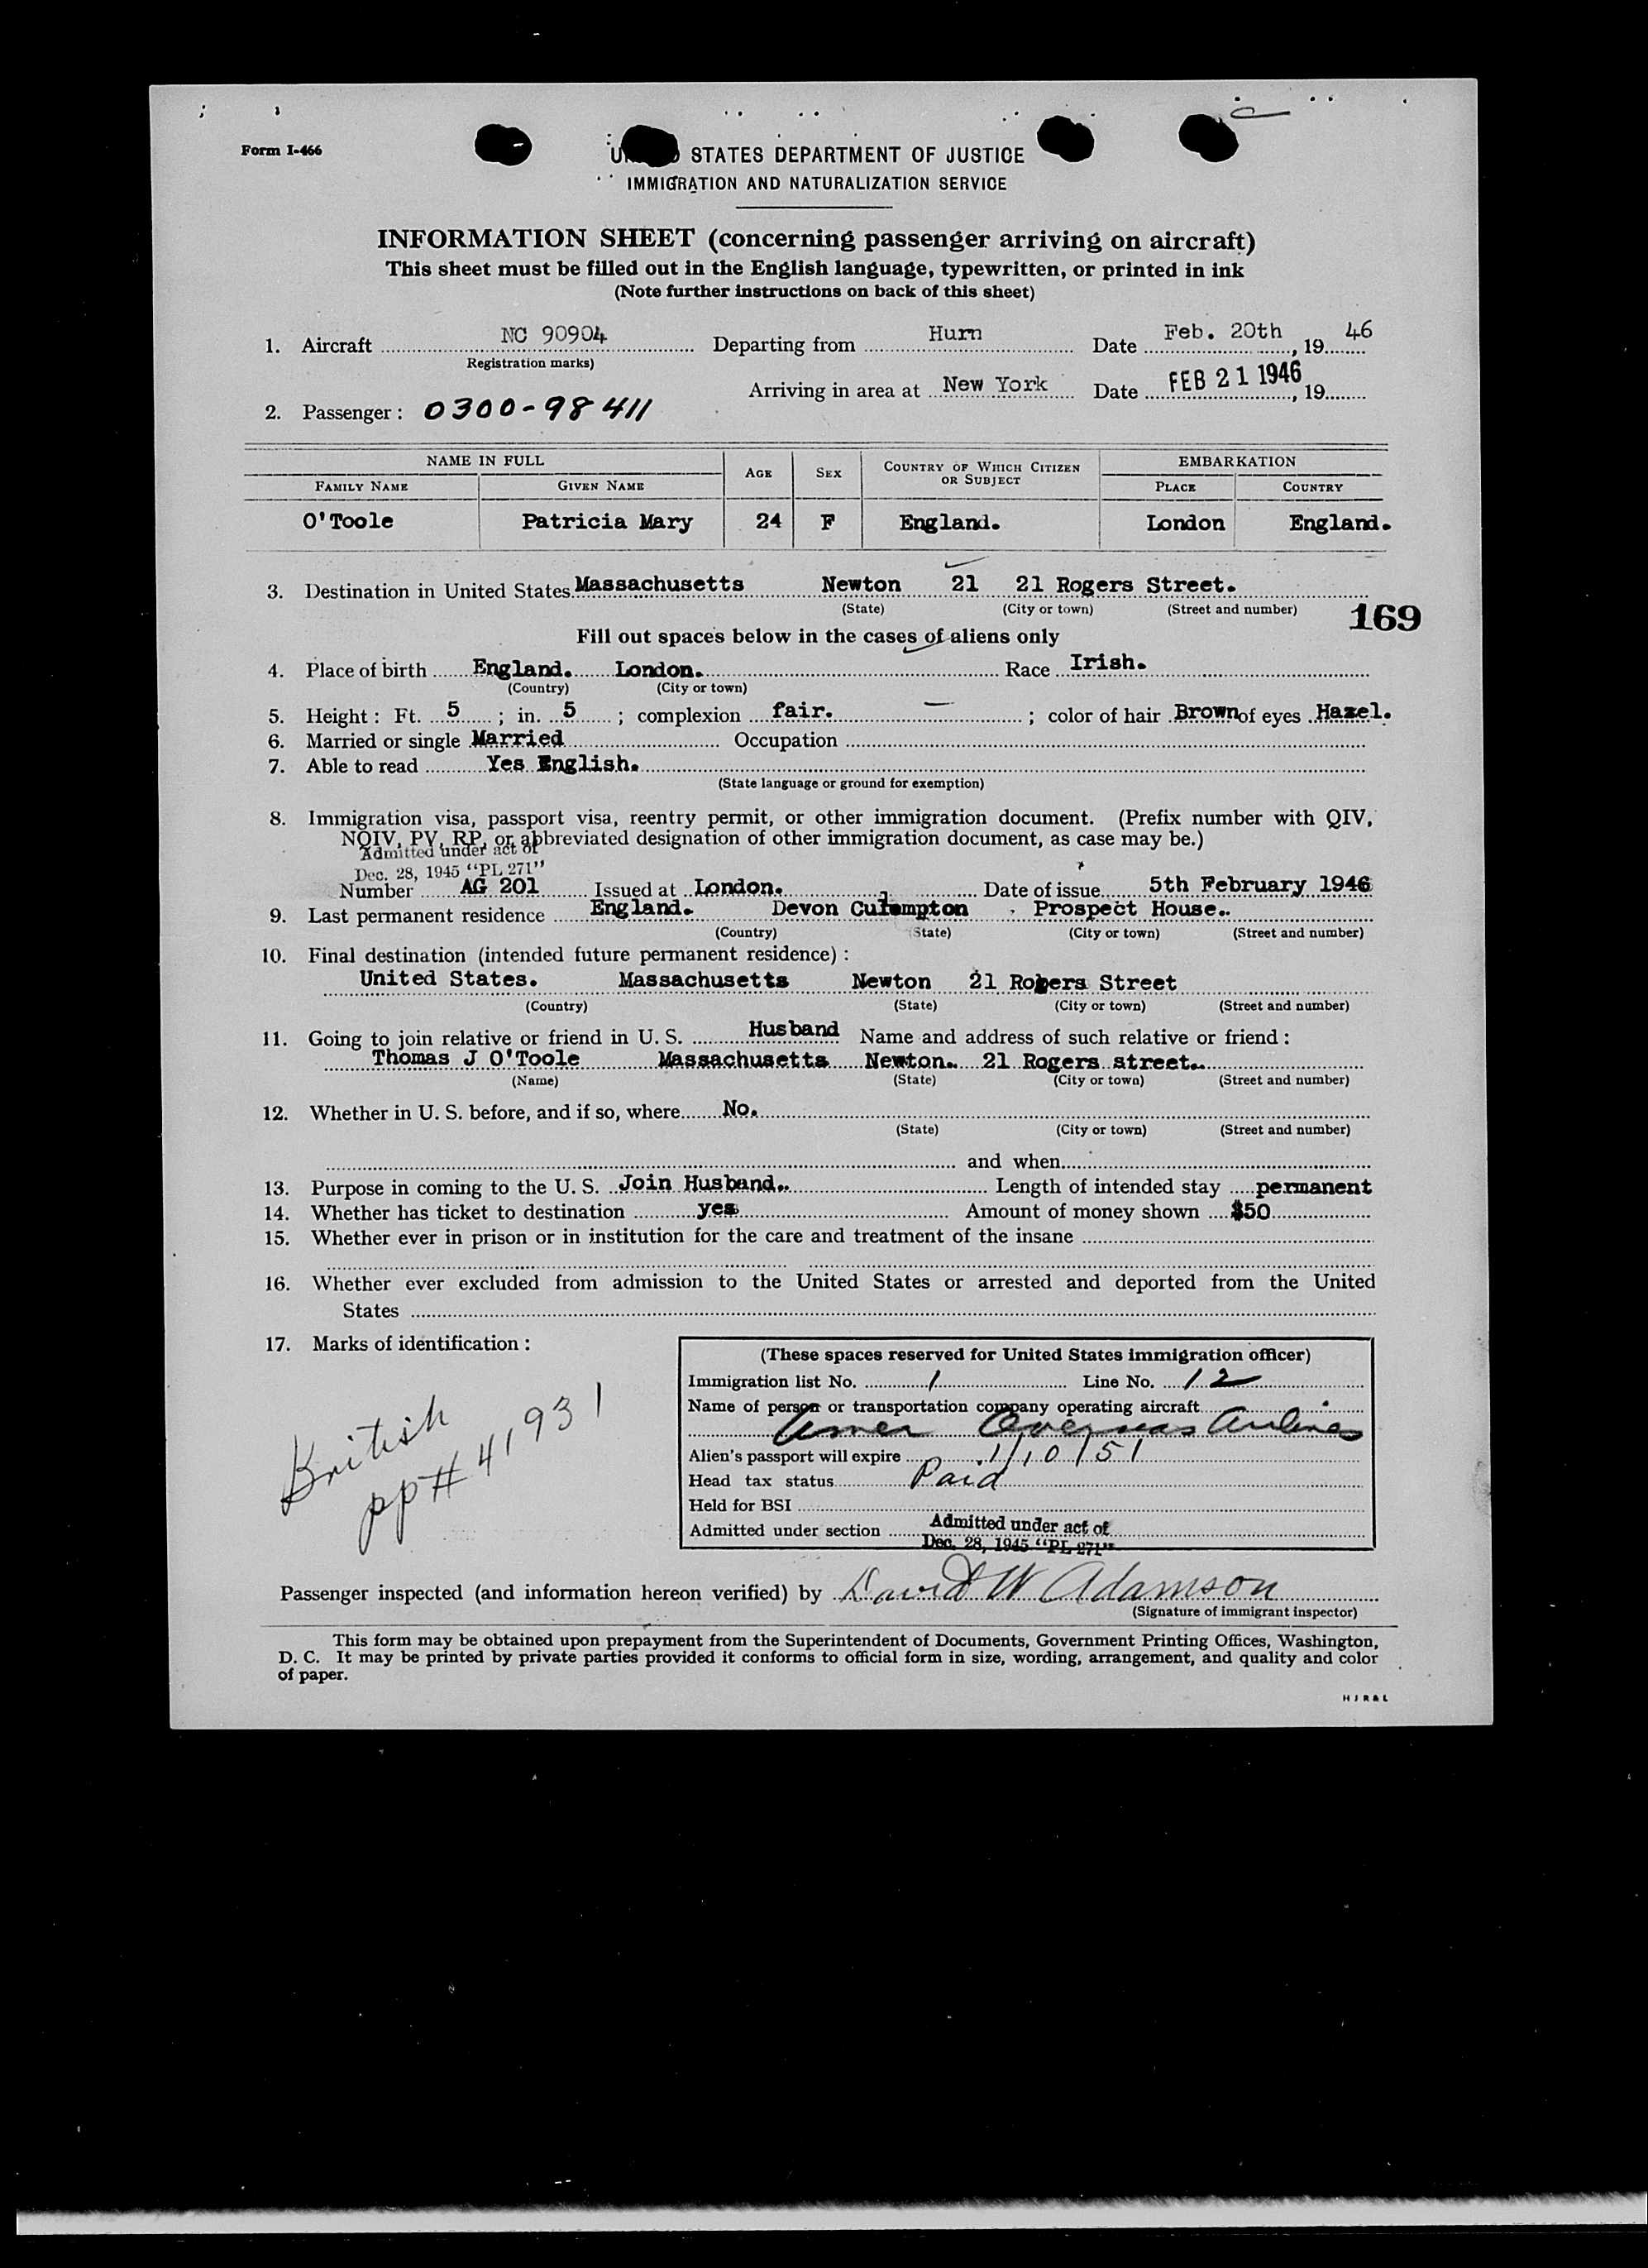 Form I-466
STATES DEPARTMENT OF JUSTICE
IMMIGRATION AND NATURALIZATION SERVICE
INFORMATION SHEET (concerning passenger arriving on aircraft)
This sheet must be filled out in the English language, typewritten, or printed in ink
(Note further instructions on back of this sheet)
1. Aircraft NC 90904 Departing from Hurn Date Feb. 20th, 19 46
(Registration marks)
Arriving in area at New York Date FEB 21 1946, 19
2. Passenger: 0300-98411
NAME IN FULL AGE SEX COUNTRY OF WHICH CITIZEN OR SUBJECT EMBARKATION
FAMILY NAME GIVEN NAME PLACE COUNTRY
O'Toole Patricia Mary 24 F England. London England.
3. Destination in United States Massachusetts Newton 21 21 Rogers Street.
(State) (City or town) (Street and number)
169
Fill out spaces below in the cases of aliens only
4. Place of birth England. London. Race Irish.
(Country) (City or town)
5. Height: Ft. 5; in. 5; complexion fair.; color of hair Brown of eyes Hazel.
6. Married or single Married Occupation
7. Able to read Yes English.
(State language or ground for exemption)
8. Immigration visa, passport visa, reentry permit, or other immigration document. (Prefix number with QIV,
NQIV, PV, RP, or abbreviated designation of other immigration document, as case may be.)
Admitted under act of
Dec. 28, 1945 "PL 271"
Number AG 201 Issued at London. Date of issue 5th February 1946
9. Last permanent residence England. Devon Culompton Prospect House.
(Country) (State) (City or town) (Street and number)
10. Final destination (intended future permanent residence):
United States. Massachusetts Newton 21 Rogers Street
(Country) (State) (City or town) (Street and number)
11. Going to join relative or friend in U. S. Husband Name and address of such relative or friend:
Thomas J O'Toole Massachusetts Newton. 21 Rogers street.
(Name) (State) (City or town) (Street and number)
12. Whether in U. S. before, and if so, where No.
(State) (City or town) (Street and number)
and when
13. Purpose in coming to the U. S. Join Husband. Length of intended stay permanent
14. Whether has ticket to destination yes Amount of money shown $50
15. Whether ever in prison or in institution for the care and treatment of the insane
16. Whether ever excluded from admission to the United States or arrested and deported from the United
States
17. Marks of identification:
British
pp# 41931
(These spaces reserved for United States immigration officer)
Immigration list No. 1 Line No. 12
Name of person or transportation company operating aircraft
Amer Overseas Airlines
Alien's passport will expire 1/10/51
Head tax status Paid
Held for BSI
Admitted under section Admitted under act of
Dec. 28, 1945 "PL 271"
Passenger inspected (and information hereon verified) by David W Adamson
(Signature of immigrant inspector)
This form may be obtained upon prepayment from the Superintendent of Documents, Government Printing Offices, Washington,
D. C. It may be printed by private parties provided it conforms to official form in size, wording, arrangement, and quality and color
of paper.
H J R & L